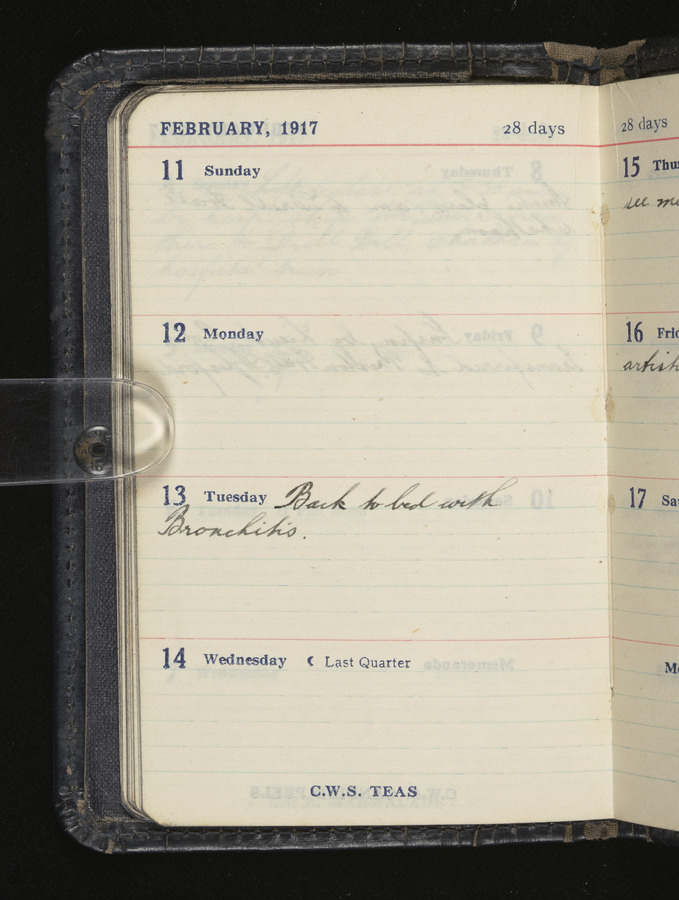 FEBRUARY, 1917 28 days
11 Sunday
12 Monday
13 Tuesday Back to bed with
Bronchitis.
14 Wednesday ☾ Last Quarter
C.W.S. TEAS
28 days
15
see
16
17